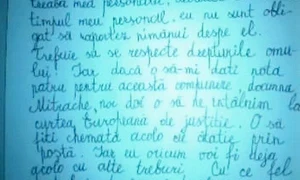 treaba mea personală,
timpul meu personal, eu nu sunt obli-
gat să raportez nimănui despre el.
Trebuie să se respecte drepturile omu-
lui! Iar dacă o să-mi dați nota
patru pentru această compunere, doamna
Mitrache, noi doi o să ne întâlnim la
curtea Europeana de justiție. O să
fiți chemată acolo cu citație prin
poștă. Iar eu oricum voi fi deja
acolo cu alte treburi. Cu ce fel